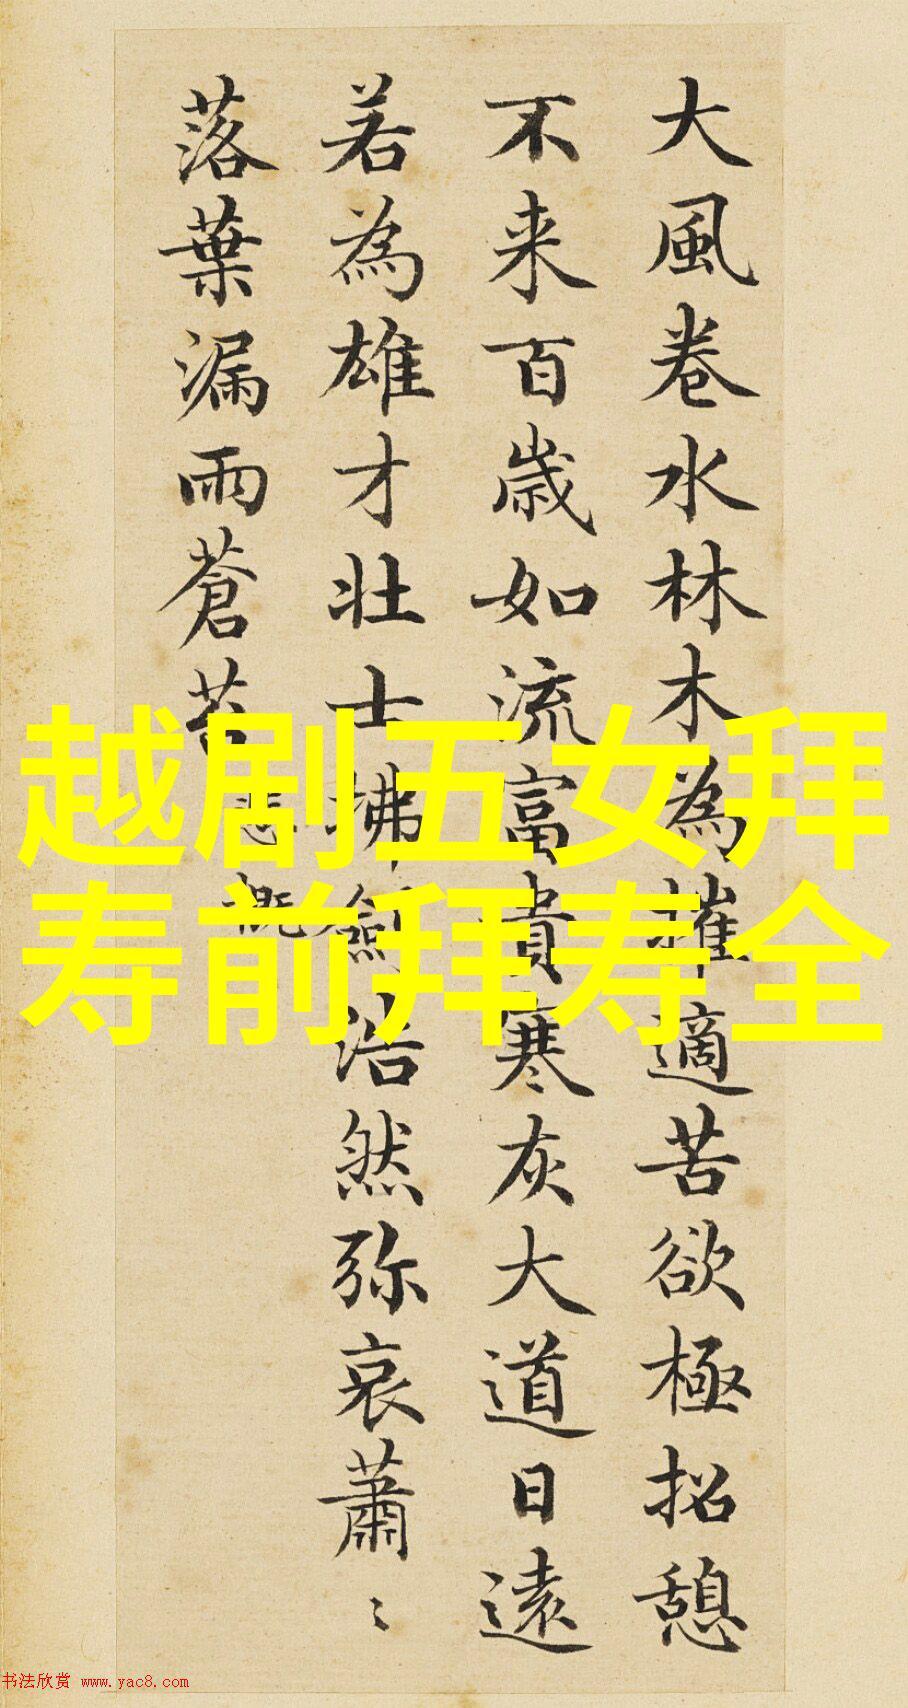 大風卷水林木為摧適苦欲極招憩
不来百歲如流富貴寒灰大道日遠
若為雄才壯士拂劍浩然弥哀蕭〻
落葉漏雨蒼苔
悲慨
越剧五女拜
寿前拜寿全
书法欣赏 www.yac8.com